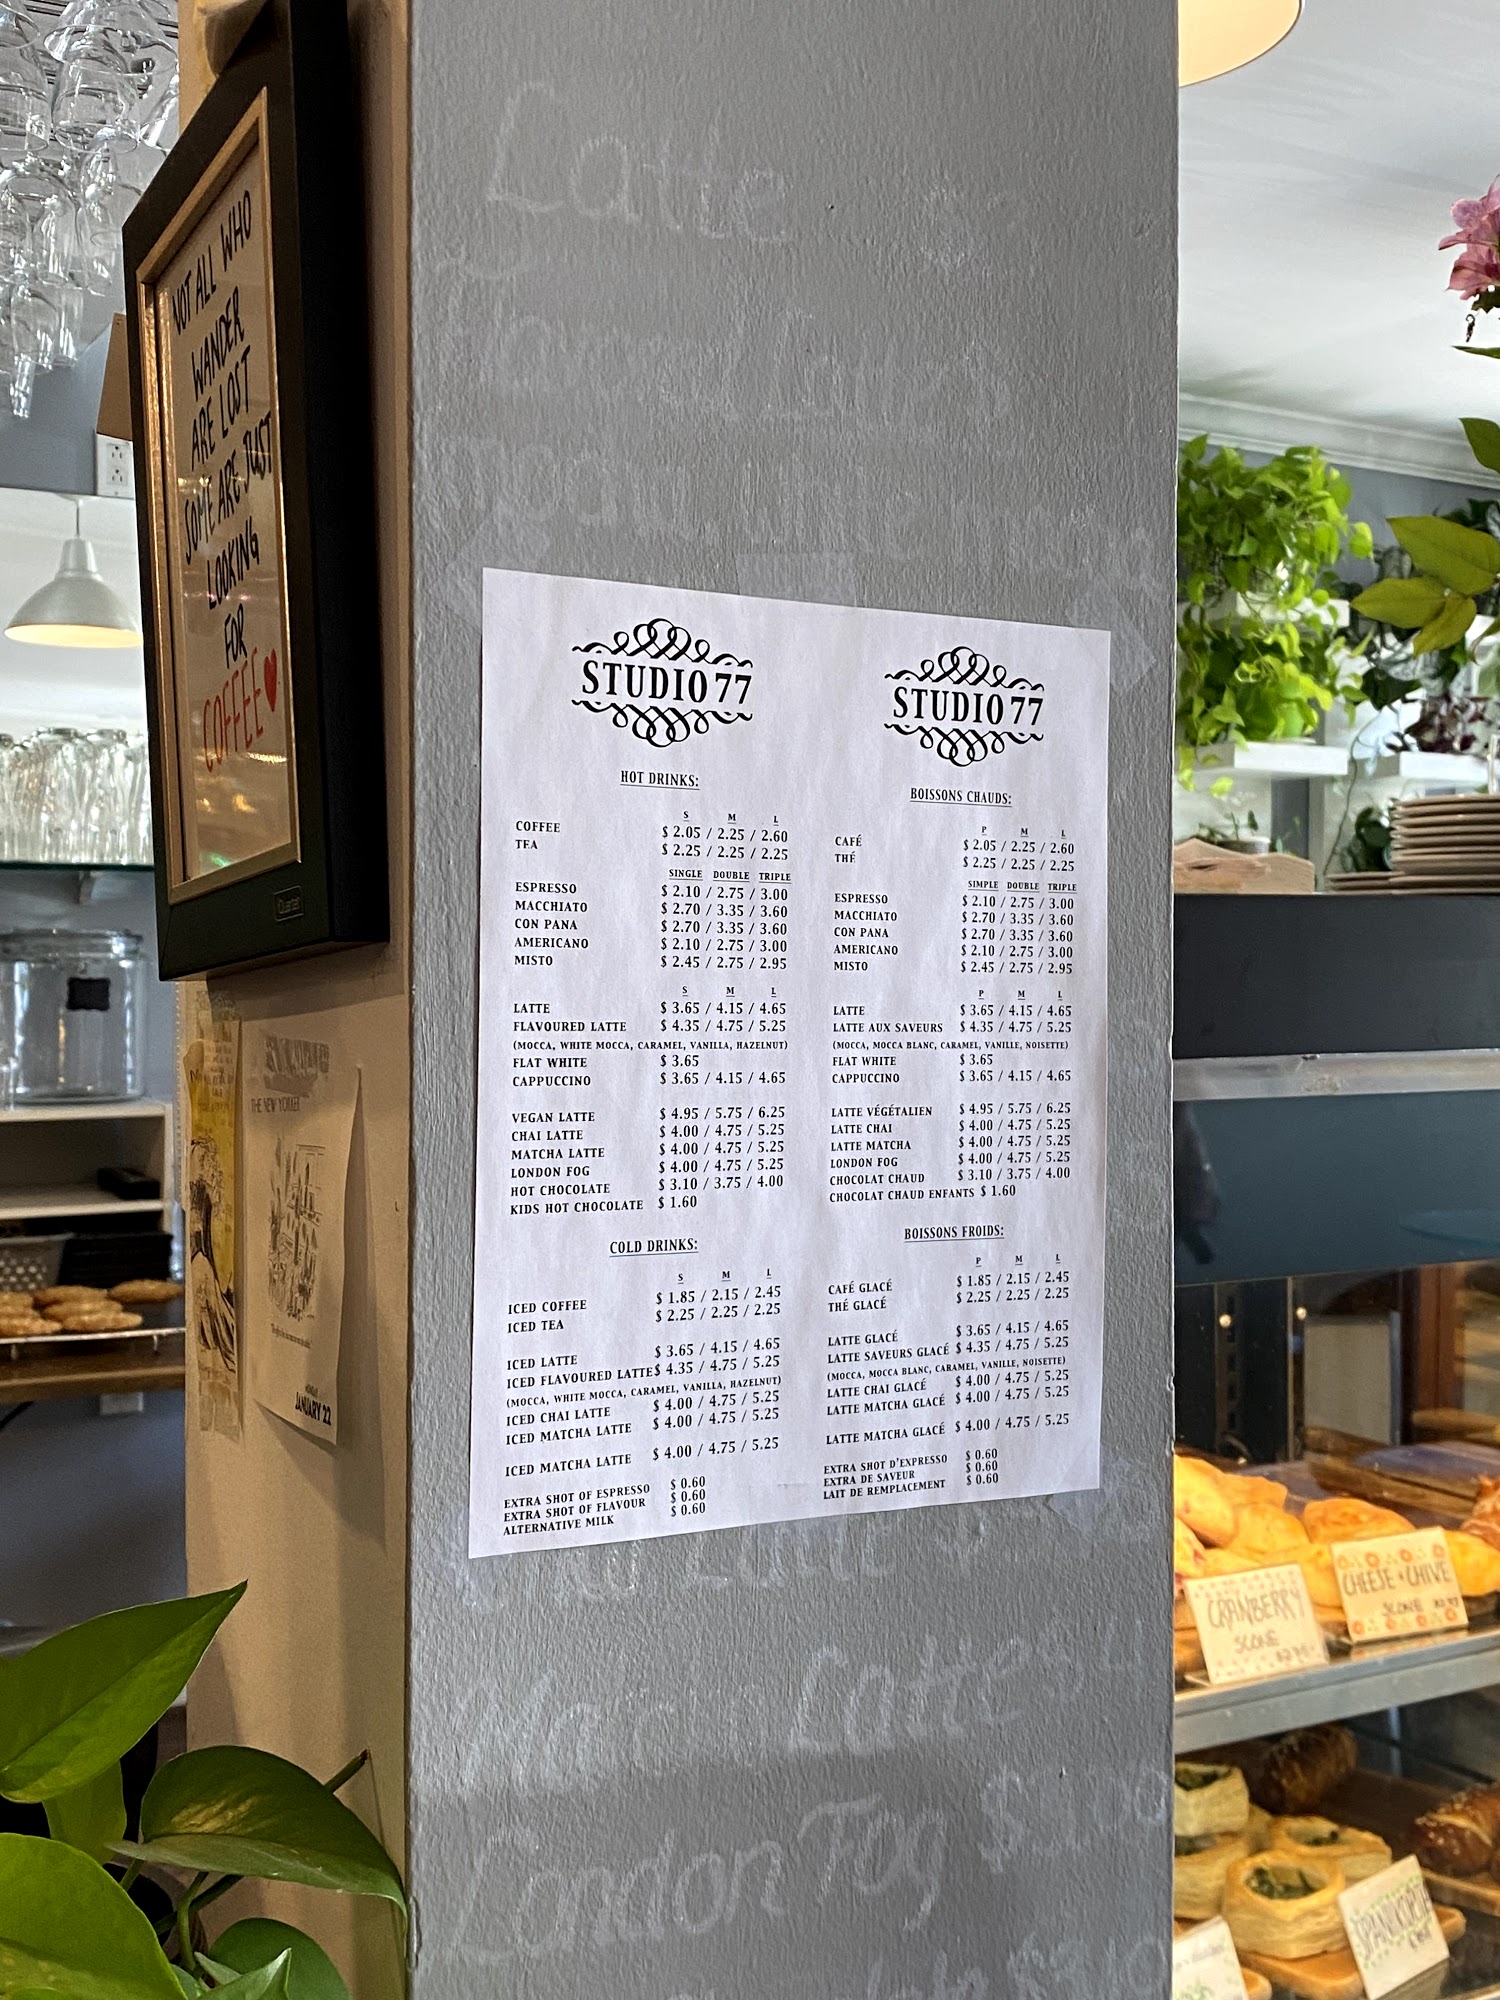 NOT ALL WHO
WANDER
ARE LOST
SOME ARE JUST
LOOKING
FOR
COFFEE
Quartet
THE NEW YORKER
MONDAY
JANUARY 22
Latte
STUDIO 77
HOT DRINKS:
S M L
COFFEE $ 2.05 / 2.25 / 2.60
TEA $ 2.25 / 2.25 / 2.25
SINGLE DOUBLE TRIPLE
ESPRESSO $ 2.10 / 2.75 / 3.00
MACCHIATO $ 2.70 / 3.35 / 3.60
CON PANA $ 2.70 / 3.35 / 3.60
AMERICANO $ 2.10 / 2.75 / 3.00
MISTO $ 2.45 / 2.75 / 2.95
S M L
LATTE $ 3.65 / 4.15 / 4.65
FLAVOURED LATTE $ 4.35 / 4.75 / 5.25
(MOCCA, WHITE MOCCA, CARAMEL, VANILLA, HAZELNUT)
FLAT WHITE $ 3.65
CAPPUCCINO $ 3.65 / 4.15 / 4.65
VEGAN LATTE $ 4.95 / 5.75 / 6.25
CHAI LATTE $ 4.00 / 4.75 / 5.25
MATCHA LATTE $ 4.00 / 4.75 / 5.25
LONDON FOG $ 4.00 / 4.75 / 5.25
HOT CHOCOLATE $ 3.10 / 3.75 / 4.00
KIDS HOT CHOCOLATE $ 1.60
COLD DRINKS:
S M L
ICED COFFEE $ 1.85 / 2.15 / 2.45
ICED TEA $ 2.25 / 2.25 / 2.25
ICED LATTE $ 3.65 / 4.15 / 4.65
ICED FLAVOURED LATTE $ 4.35 / 4.75 / 5.25
(MOCCA, WHITE MOCCA, CARAMEL, VANILLA, HAZELNUT)
ICED CHAI LATTE $ 4.00 / 4.75 / 5.25
ICED MATCHA LATTE $ 4.00 / 4.75 / 5.25
ICED MATCHA LATTE $ 4.00 / 4.75 / 5.25
EXTRA SHOT OF ESPRESSO $ 0.60
EXTRA SHOT OF FLAVOUR $ 0.60
ALTERNATIVE MILK $ 0.60
STUDIO 77
BOISSONS CHAUDS:
P M L
CAFÉ $ 2.05 / 2.25 / 2.60
THÉ $ 2.25 / 2.25 / 2.25
SIMPLE DOUBLE TRIPLE
ESPRESSO $ 2.10 / 2.75 / 3.00
MACCHIATO $ 2.70 / 3.35 / 3.60
CON PANA $ 2.70 / 3.35 / 3.60
AMERICANO $ 2.10 / 2.75 / 3.00
MISTO $ 2.45 / 2.75 / 2.95
P M L
LATTE $ 3.65 / 4.15 / 4.65
LATTE AUX SAVEURS $ 4.35 / 4.75 / 5.25
(MOCCA, MOCCA BLANC, CARAMEL, VANILLE, NOISETTE)
FLAT WHITE $ 3.65
CAPPUCCINO $ 3.65 / 4.15 / 4.65
LATTE VÉGÉTALIEN $ 4.95 / 5.75 / 6.25
LATTE CHAI $ 4.00 / 4.75 / 5.25
LATTE MATCHA $ 4.00 / 4.75 / 5.25
LONDON FOG $ 4.00 / 4.75 / 5.25
CHOCOLAT CHAUD $ 3.10 / 3.75 / 4.00
CHOCOLAT CHAUD ENFANTS $ 1.60
BOISSONS FROIDS:
P M L
CAFÉ GLACÉ $ 1.85 / 2.15 / 2.45
THÉ GLACÉ $ 2.25 / 2.25 / 2.25
LATTE GLACÉ $ 3.65 / 4.15 / 4.65
LATTE SAVEURS GLACÉ $ 4.35 / 4.75 / 5.25
(MOCCA, MOCCA BLANC, CARAMEL, VANILLE, NOISETTE)
LATTE CHAI GLACÉ $ 4.00 / 4.75 / 5.25
LATTE MATCHA GLACÉ $ 4.00 / 4.75 / 5.25
LATTE MATCHA GLACÉ $ 4.00 / 4.75 / 5.25
EXTRA SHOT D'EXPRESSO $ 0.60
EXTRA DE SAVEUR $ 0.60
LAIT DE REMPLACEMENT $ 0.60
Latte
Latte
London Fog
CRANBERRY
SCONE
CHEESE + CHIVE
SCONE